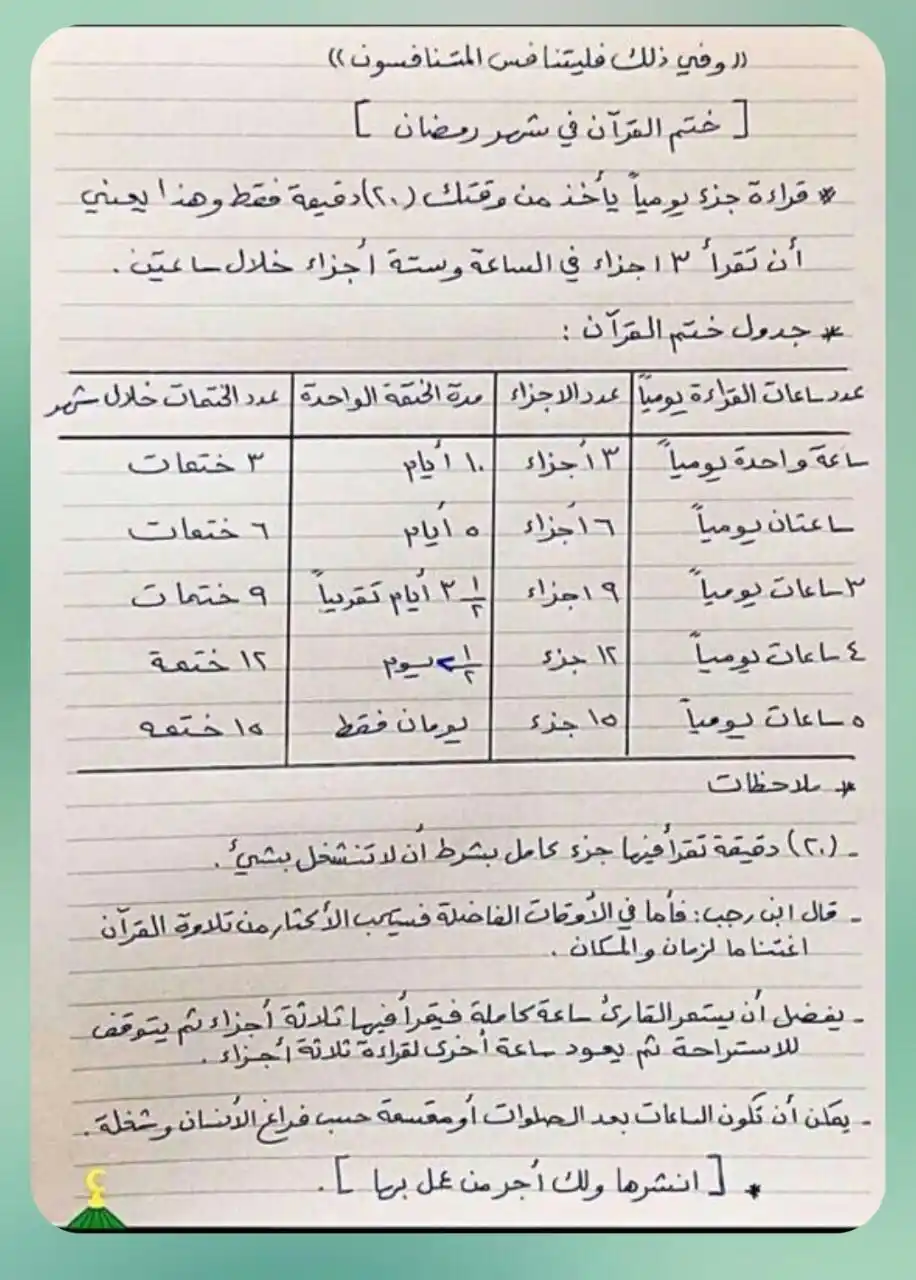 ((وفي ذلك فليتنافس المتنافسون))
[ ختم القرآن في شهر رمضان ]
* قراءة جزء يومياً يأخذ من وقتك (٢٠) دقيقة فقط وهذا يعني
أن تقرأ ٣ اجزاء في الساعة وستة أجزاء خلال ساعتين .
* جدول ختم القرآن :
عدد ساعات القراءة يومياً | عدد الاجزاء | مدة الختمة الواحدة | عدد الختمات خلال شهر
ساعة واحدة يومياً | ٣ أجزاء | ١٠ أيام | ٣ ختمات
ساعتان يومياً | ٦ أجزاء | ٥ أيام | ٦ ختمات
٣ ساعات يومياً | ٩ اجزاء | ٣ ١/٢ أيام تقريباً | ٩ ختمات
٤ ساعات يومياً | ١٢ جزء | ٢ ١/٢ يوم | ١٢ ختمة
٥ ساعات يومياً | ١٥ جزء | يومان فقط | ١٥ ختمه
* ملاحظات
- (٢٠) دقيقة تقرأ فيها جزء كامل بشرط أن لا تنشغل بشيء .
- قال ابن رجب: فأما في الأوقات الفاضلة فيستحب الأكثار من تلاوة القرآن
اغتناما لزمان والمكان .
- يفضل أن يستمر القارئ ساعة كاملة فيقرأ فيها ثلاثة أجزاء ثم يتوقف
للاستراحة ثم يعود ساعة أخرى لقراءة ثلاثة أجزاء .
- يمكن أن تكون الساعات بعد الصلوات أو مقسمة حسب فراغ الأنسان وشغلة .
* [ انشرها ولك أجر من عمل بها ] .